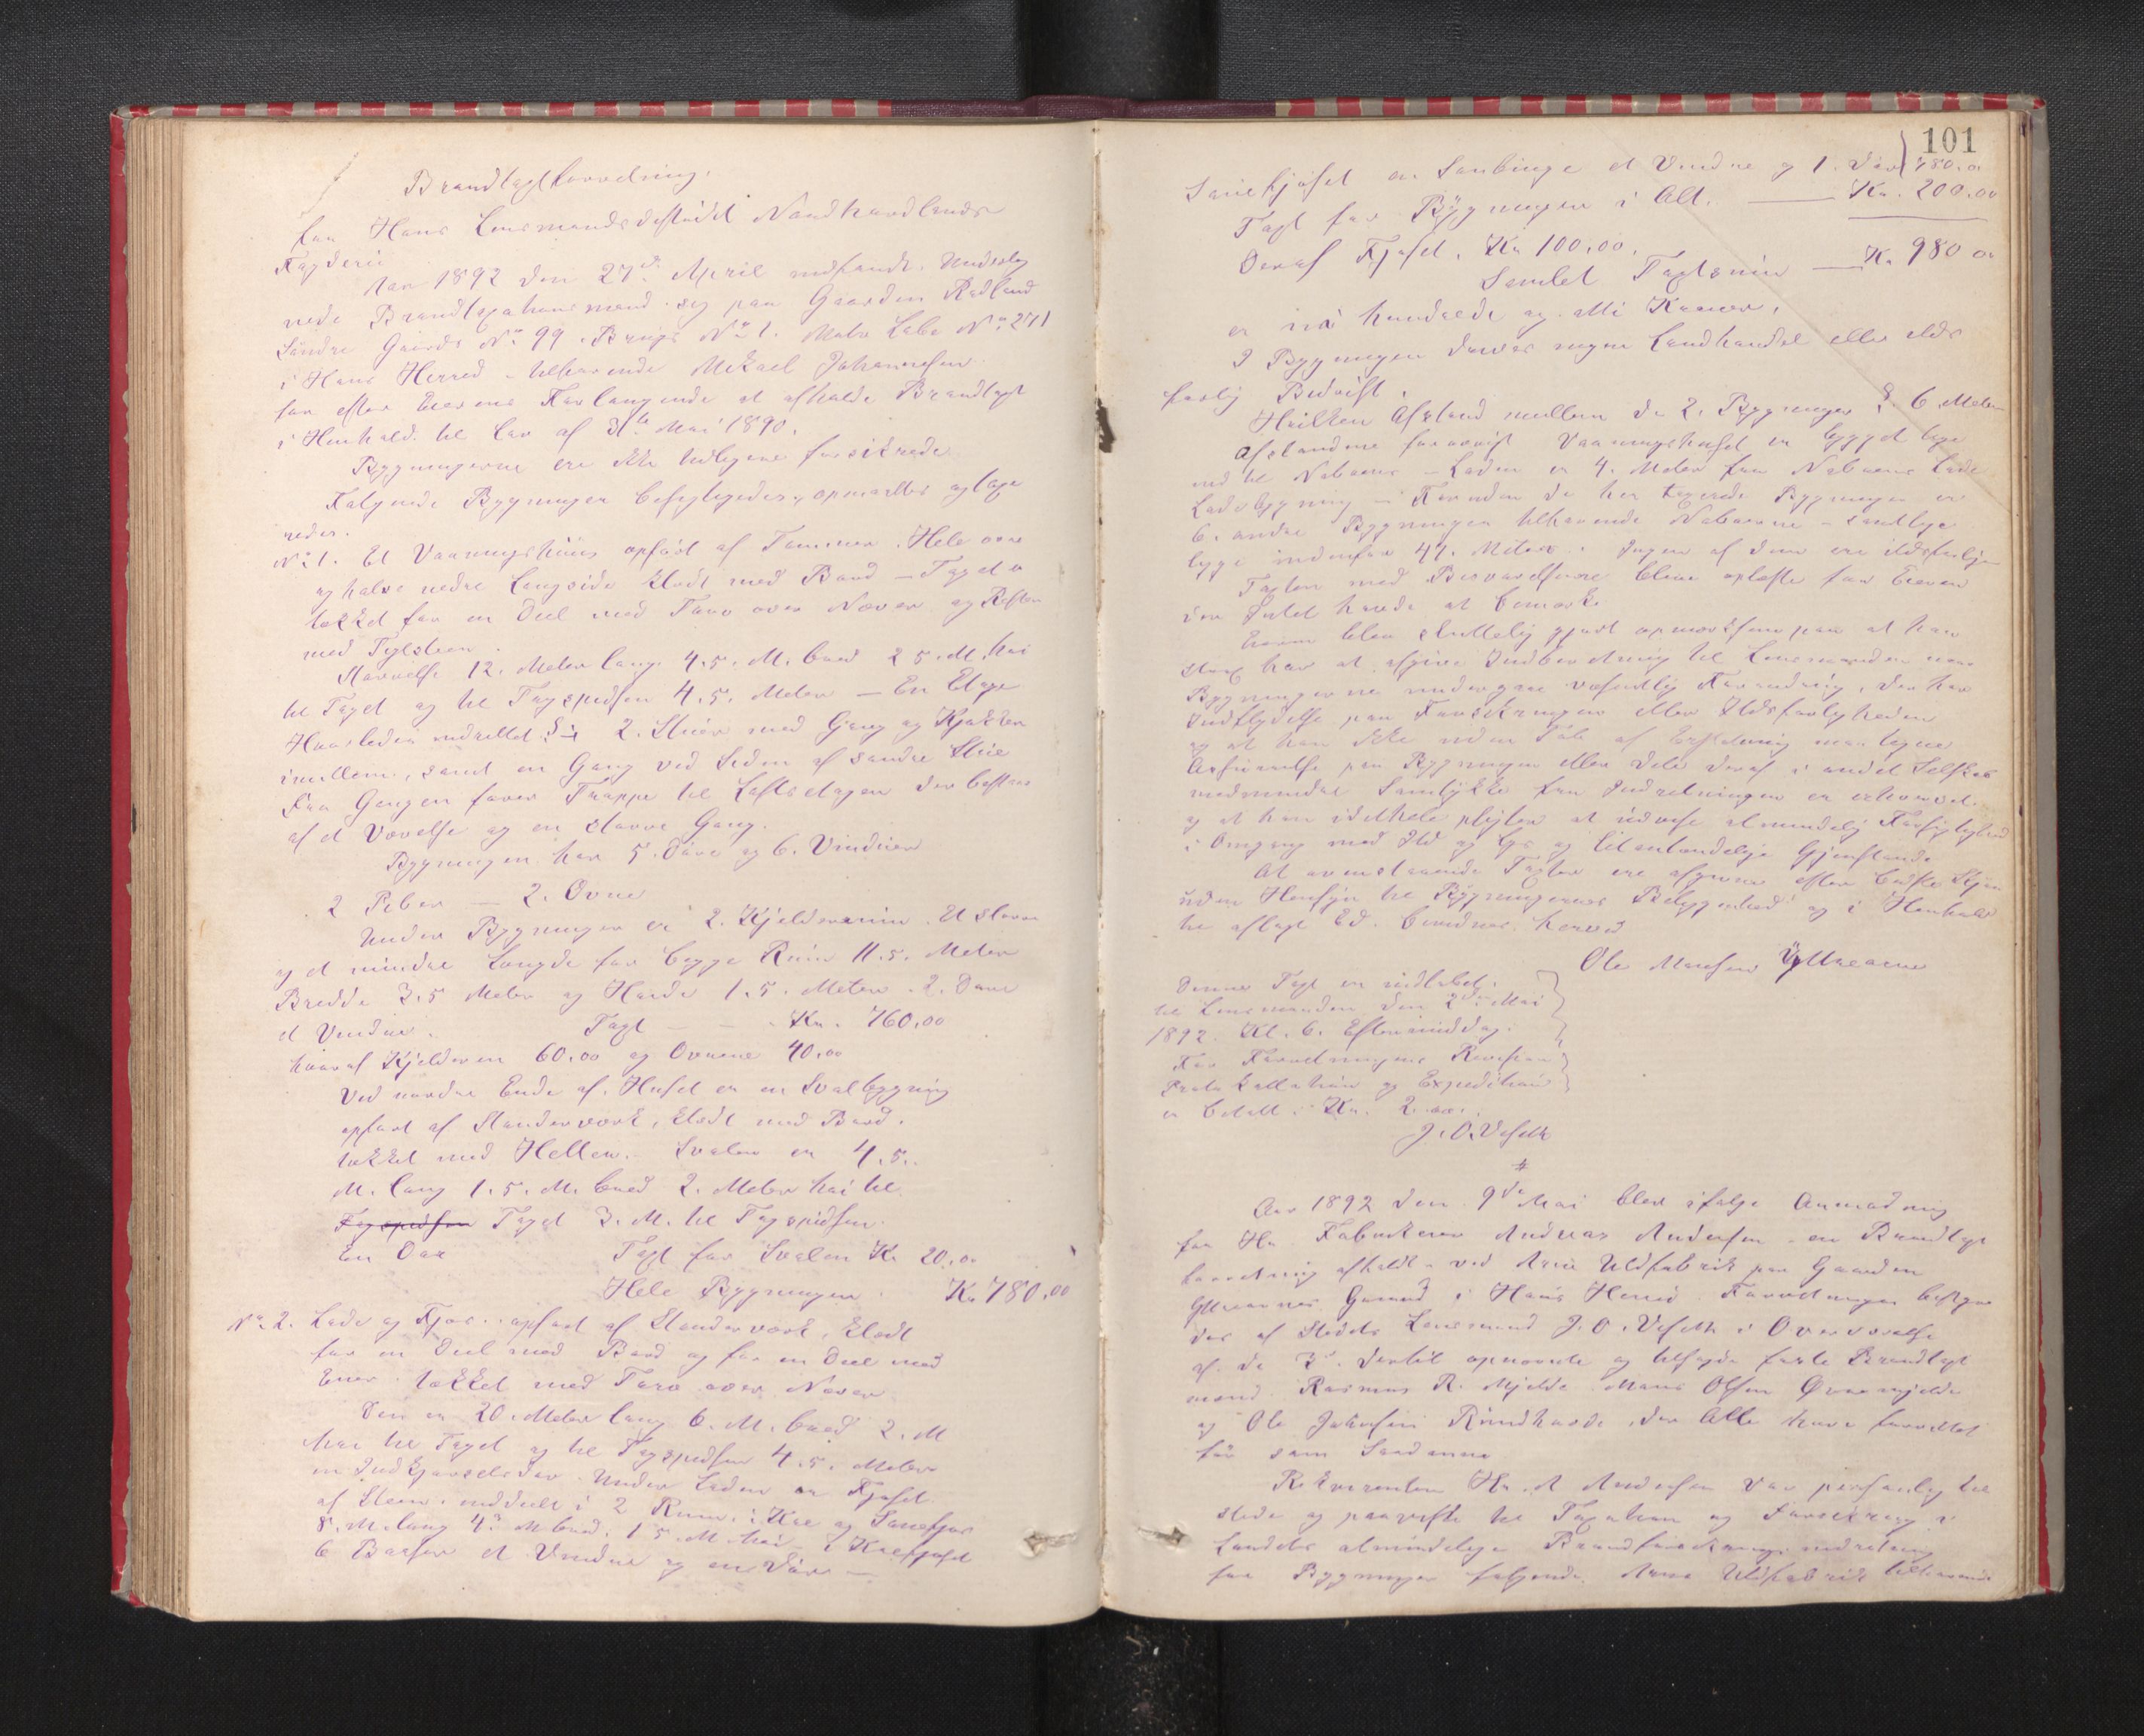 Brandtaxtforretning.
fra Haus Lensmandsdistrikt Nordhordlands
Fogderi
Aar 1892 den 27de April indfandt Underteg
nede Brandtaxationsmænd sig paa Gaarden Rødland
Søndre Gaards No 99 Brugs No 1. Matr Løbe No 271
i Haus Herred tilhørende Mikael Johannesen
for efter Eierens Forlangende at afholde Brandtaxt
i Henhold til Lov af 31te Mai 1890.
Bygningerne ere ikke tidligere forsikrede
Følgende Bygninger besigtigedes, opmaaltes og taxe
redes.
No 1. Et Vaaningshuus opført af Tømmer. Hele øvre
og halve nedre Langside klædt med Bord – Taget er
tækket for en Deel med Torv over Næver og Resten
med Taglsteen.
Størrelse 12. Meter lang 4.5. M. bred 2 5. M. høi
til Taget og til Tagspidsen 4.5. Meter – En Etage
Huusleden indrettet til 2. Stuer med Gang og Kjøkken
imellem, samt en Gang ved Siden af søndre Stue
Fra Gangen fører Trappe til Loftsetagen der bestaar
af et Værelse og en større Gang.
Bygningen har 5. Døre og 6. Vinduer
2 Piber – 2. Ovne
Under Bygningen er 2. Kjelderrum. Et større
og et mindre Længde for begge Rum 11.5. Meter
Bredde 3.5 Meter og Høide 1.5. Meter. 2. Døre
et Vindue. Taxt – – Kr. 760.00
hvoraf Kjelderen 60.00 og Ovnene 40.00
Ved nordre Ende af Huset er en Svalbygning
opført af Standerværk, klædt med Bord.
tækket med Heller. Svalen er 4.5.
M. lang 1.5. M. bred 2. Meter høi til
Tagspidsen Taget 3. M. til Tagspidsen.
En Dør Taxt for Svalen Kr 20.00
Hele Bygningen. Kr 780.00
No 2. Lade og Fjøs. opført af Standerværk, klædt
for en Deel med Bord og for en Deel med
Ener. tækket med Torv over Næver
Den er 20. Meter lang 6. M. bred 2. M
høi til Taget og til Tagspidsen 4.5. Meter
en Indkjørselsdør. Under Laden er Fjøset
af Steen. inddeelt i 2 Rum, i Koe og Sauefjøs
8. M. lang 4.5 M bred. 1 5. M høi – I Koefjøset
6 Baaser et Vindue og en Dør –
101
Sauefjøset en Saubinge et Vindue og 1. Dør 780.00
Taxt for Bygningen i Alt. – Kr. 200.00
Deraf Fjøset. Kr 100.00.
Samlet Taxtsum – Kr 980 00
er ni hundrede og otti Kroner.
I Bygningen drives ingen Landhandel eller ilds
farlig Bedrift.
Hvilken Afstand mellem de 2. Bygninger er 6. Meter
Afstandene forøvrigt Vaaningshuset er bygget lige
ind til Naboens – Laden er 4. Meter fra Naboens Lade
Ladebygning – Foruden de her taxerede Bygninger er
6. andre Bygninger tilhørende Naboerne – samtlige
ligge indenfor 47. Meter. Ingen af dem ere ildsfarlige
Taxten med Besvarelserne bleve oplæste for Eieren
der Intet havde at bemærke
Eieren blev sluttelig gjort opmærksom paa at han
strax har at afgive Indberetning til Lensmanden naar
Bygningerne undergaar væsentlig Forandring, der har
Indflydelse paa Forsikringen eller Ildsfarligheden
og at han ikke uden Tab af Erstatning maa tegne
Assurance paa Bygninger eller Dele deraf i andet Selskab
medmindre Samtykke fra Indretningen er erhvervet.
og at han idethele pligter at udvise almindelig Forsigtighed
i Omgang med Ild og Lys og letantændelige Gjenstande
At ovenstaaende Taxter ere afgivne efter bedste Skjøn
uden Hensyn til Bygningernes Beliggenhed og i Henhold
til aflagt Ed. bevidnes herved
Ole Monsen Yttrearne
Denne Taxt er indløbet
til Lensmanden den 2den Mai
1892. Kl. 6. Eftermiddag.
For Forretningens Revision
Protokollation og Expedition
er betalt Kr. 2.00.
J. O. Vefeth
#
Aar 1892 den 9de Mai blev ifølge Anmodning
fra Hr. Fabrikeier Andreas Andersen en Brandtaxt
forretning afholdt ved Arne Uldfabrik paa Gaarden
Yttrearnes Grund i Haus Herred. Forretningen bestyre
des af Stedets Lensmand J. O. Vefeth i Overværelse
af de 3de. dertil opnævnte og tilsagte faste Brandtaxt
mænd Rasmus R. Mjelde Mons Olsen Øvremjelde
og Ole Johnsen Rundhovde, der Alle have forrettet
før som Saadanne
Rekvirenten Hr. A Andersen var personlig til
stede og paaviste til Taxation og Forsikring i
Landets almindelige Brandforsikrings indretning
for Bygninger følgende Arne Uldfabrik tilhørende